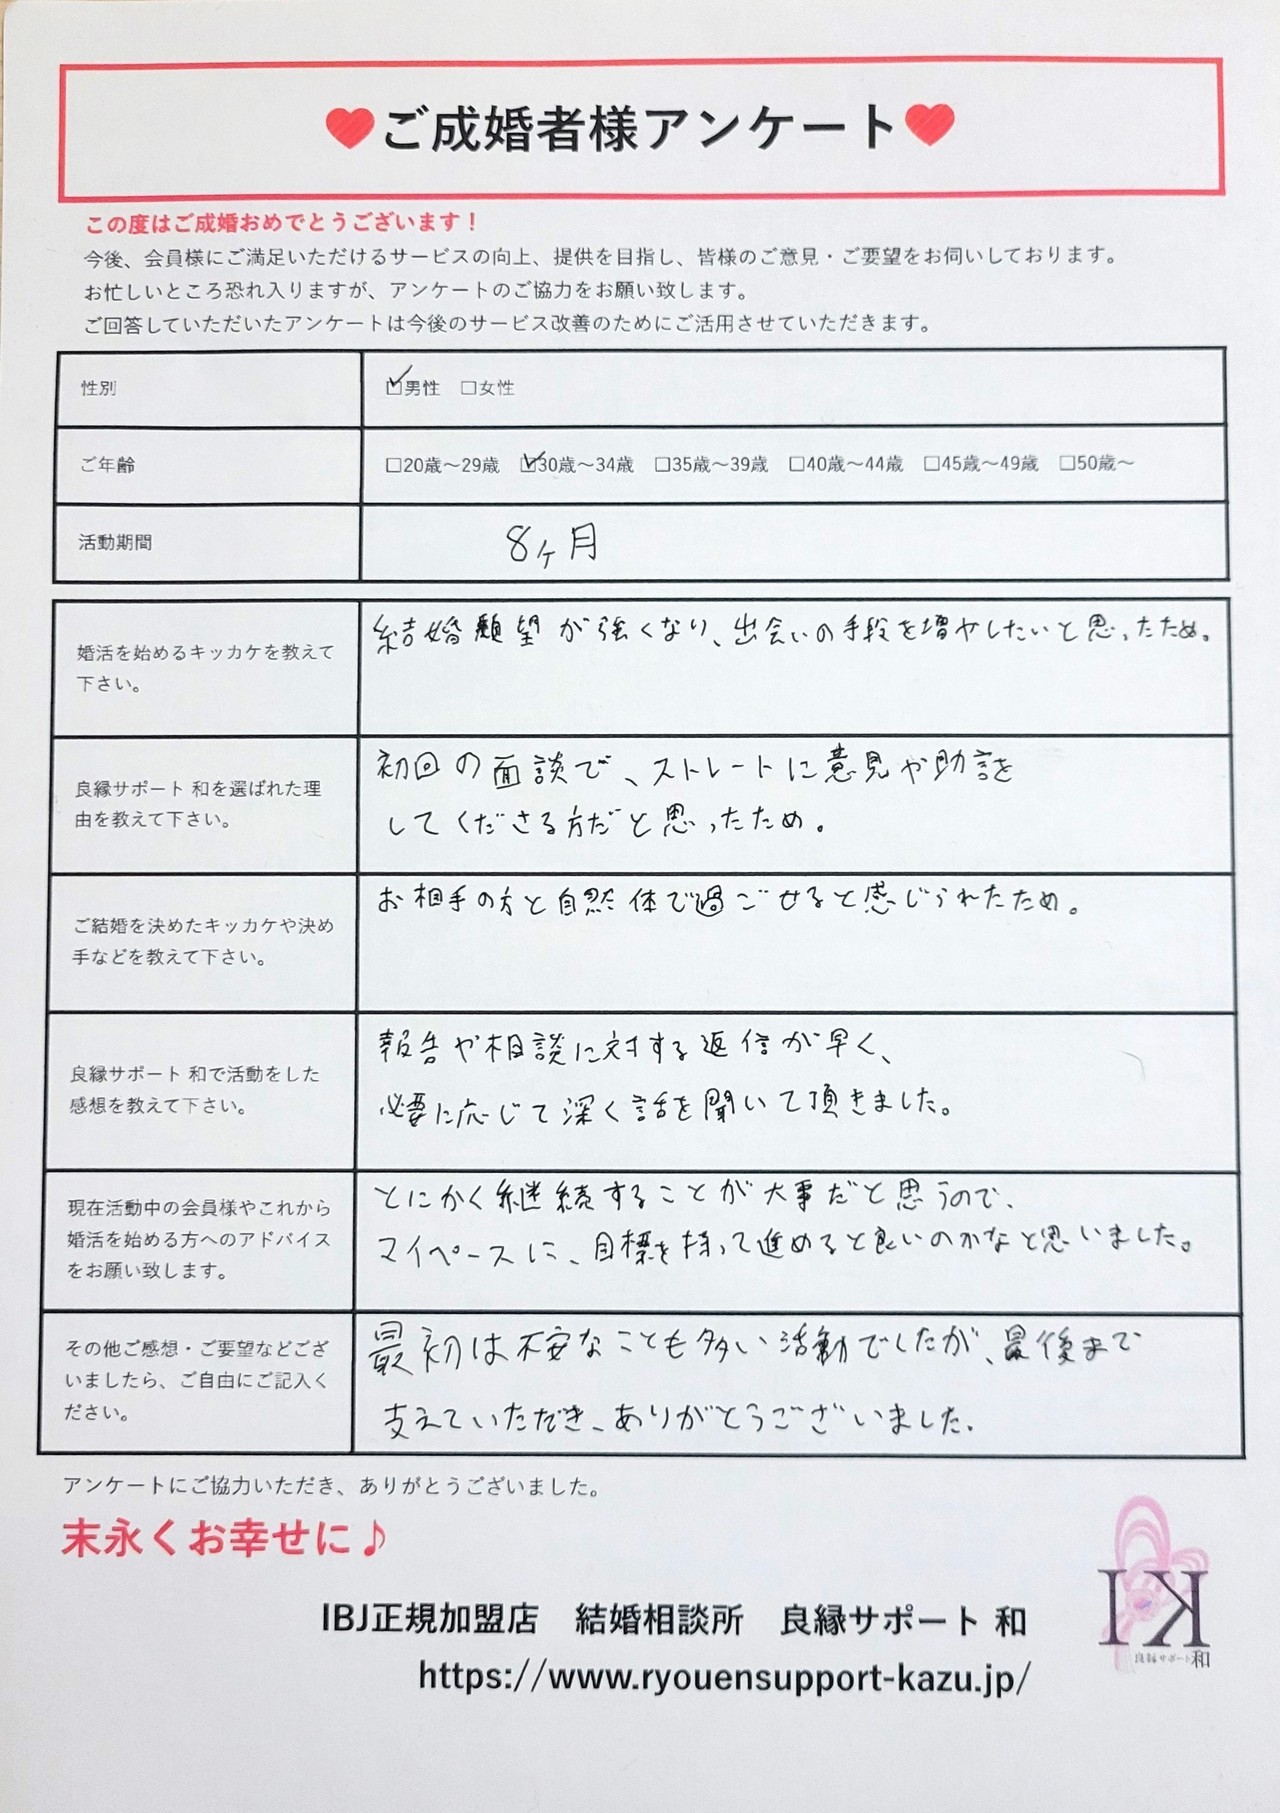 ❤ご成婚者様アンケート❤
この度はご成婚おめでとうございます！
今後、会員様にご満足いただけるサービスの向上、提供を目指し、皆様のご意見・ご要望をお伺いしております。
お忙しいところ恐れ入りますが、アンケートのご協力をお願い致します。
ご回答していただいたアンケートは今後のサービス改善のためにご活用させていただきます。
性別 ☑男性 □女性
ご年齢 □20歳～29歳 ☑30歳～34歳 □35歳～39歳 □40歳～44歳 □45歳～49歳 □50歳～
活動期間 8ヶ月
婚活を始めるキッカケを教えて
下さい。
結婚願望が強くなり、出会いの手段を増やしたいと思ったため。
良縁サポート 和を選ばれた理
由を教えて下さい。
初回の面談で、ストレートに意見や助言を
してくださる方だと思ったため。
ご結婚を決めたキッカケや決め
手などを教えて下さい。
お相手の方と自然体で過ごせると感じられたため。
良縁サポート 和で活動をした
感想を教えて下さい。
報告や相談に対する返信が早く、
必要に応じて深く話を聞いて頂きました。
現在活動中の会員様やこれから
婚活を始める方へのアドバイス
をお願い致します。
とにかく継続することが大事だと思うので、
マイペースに、目標を持って進めると良いのかなと思いました。
その他ご感想・ご要望などござ
いましたら、ご自由にご記入く
ださい。
最初は不安なことも多い活動でしたが、最後まで
支えていただき、ありがとうございました。
アンケートにご協力いただき、ありがとうございました。
末永くお幸せに♪
IBJ正規加盟店 結婚相談所 良縁サポート 和
https://www.ryouensupport-kazu.jp/
IK
良縁サポート和